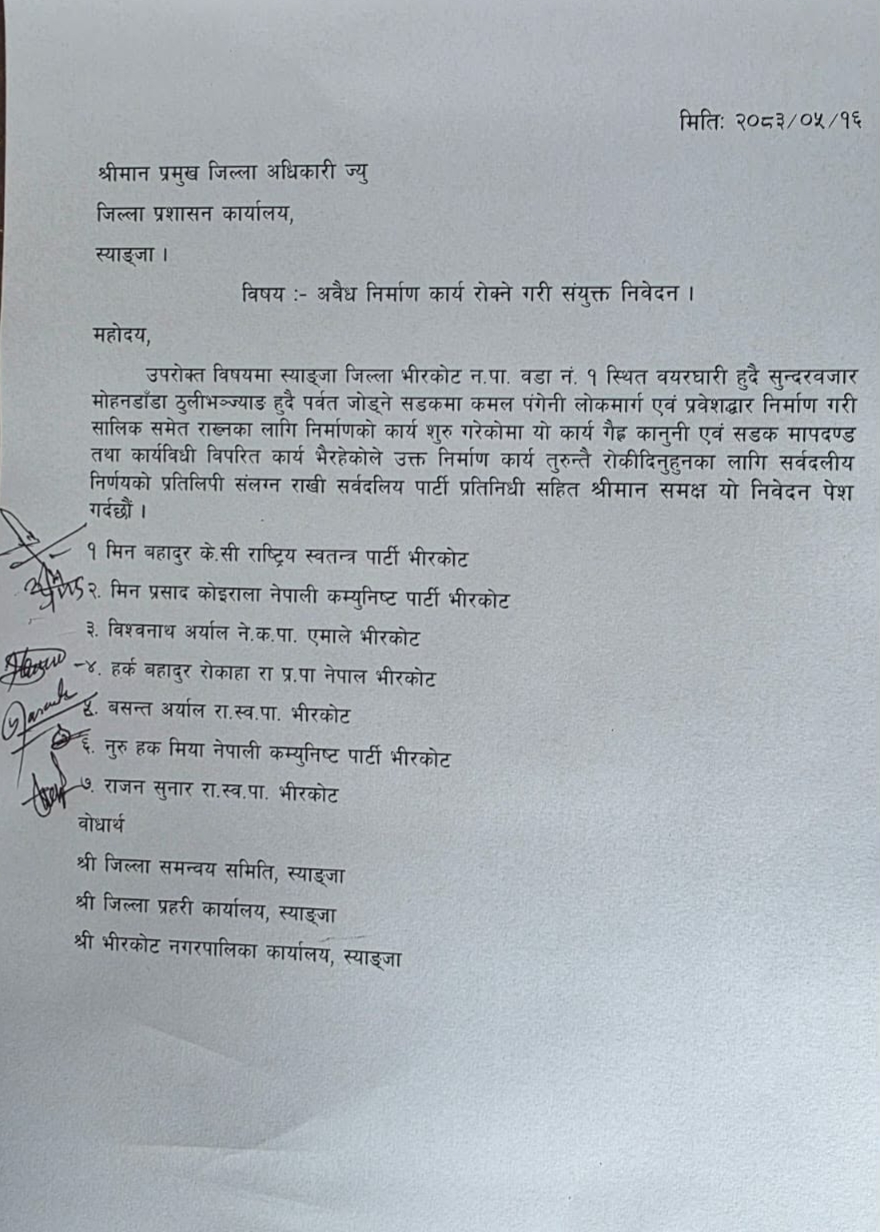 मितिः २०८३/०५/१६
श्रीमान प्रमुख जिल्ला अधिकारी ज्यु
जिल्ला प्रशासन कार्यालय,
स्याङ्जा ।
विषय :- अवैध निर्माण कार्य रोक्ने गरी संयुक्त निवेदन ।
महोदय,
उपरोक्त विषयमा स्याङ्जा जिल्ला भीरकोट न.पा. वडा नं. १ स्थित वयरघारी हुदै सुन्दरवजार
मोहनडाँडा ठुलीभञ्ज्याङ हुदै पर्वत जोड्ने सडकमा कमल पंगेनी लोकमार्ग एवं प्रवेशद्धार निर्माण गरी
सालिक समेत राख्नका लागि निर्माणको कार्य शुरु गरेकोमा यो कार्य गैह्र कानुनी एवं सडक मापदण्ड
तथा कार्यविधी विपरित कार्य भैरहेकोले उक्त निर्माण कार्य तुरुन्तै रोकीदिनुहुनका लागि सर्वदलीय
निर्णयको प्रतिलिपी संलग्न राखी सर्वदलिय पार्टी प्रतिनिधी सहित श्रीमान समक्ष यो निवेदन पेश
गर्दछौं ।
१ मिन बहादुर के.सी राष्ट्रिय स्वतन्त्र पार्टी भीरकोट
२. मिन प्रसाद कोइराला नेपाली कम्युनिष्ट पार्टी भीरकोट
३. विश्वनाथ अर्याल ने.क.पा. एमाले भीरकोट
४. हर्क बहादुर रोकाहा रा प्र.पा नेपाल भीरकोट
५. बसन्त अर्याल रा.स्व.पा. भीरकोट
६. नुरु हक मिया नेपाली कम्युनिष्ट पार्टी भीरकोट
७. राजन सुनार रा.स्व.पा. भीरकोट
वोधार्थ
श्री जिल्ला समन्वय समिति, स्याङ्जा
श्री जिल्ला प्रहरी कार्यालय, स्याङ्जा
श्री भीरकोट नगरपालिका कार्यालय, स्याङ्जा